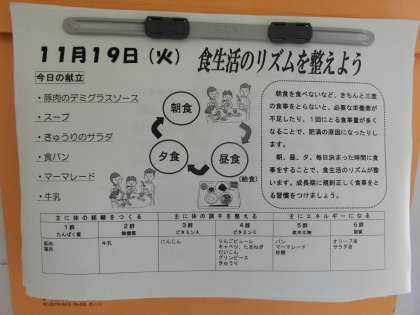 11月19日（火）
食生活のリズムを整えよう
今日の献立
・豚肉のデミグラスソース
・スープ
・きゅうりのサラダ
・食パン
・マーマレード
・牛乳
朝食
夕食
昼食
（給食）
朝食を食べないなど、きちんと三度
の食事をとらないと、必要な栄養素が
不足したり、1回にとる食事量が多く
なることで、肥満の原因になったりし
ます。
朝、昼、夕、毎日決まった時間に食
事をすることで、食生活のリズムが整
います。成長期に規則正しく食事をと
る習慣をつけましょう。
主に体の組織をつくる
主に体の調子を整える
主にエネルギーになる
1群
2群
3群
4群
5群
6群
たんぱく質
無機質
ビタミンA
ビタミンC
炭水化物
脂質
豚肉
牛乳
にんじん
りんごピューレ
キャベツ、たまねぎ
だいこん
グリンピース
きゅうり
パン
マーマレード
砂糖
オリーブ油
サラダ油